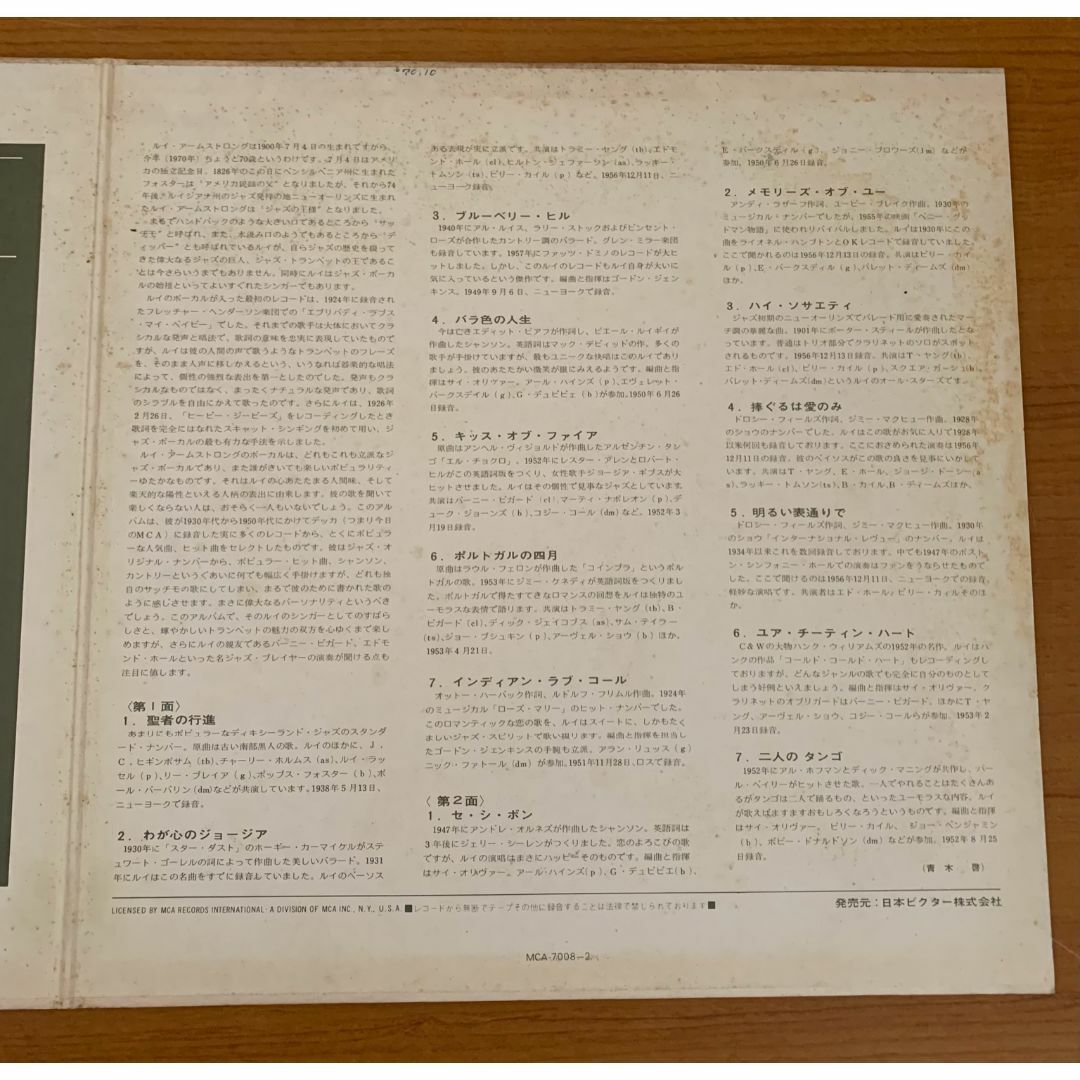 '70.10
ルイ・アームストロングは1900年7月4日の生まれですから、
今年(1970年)ちょうど70歳というわけです。7月4日はアメリ
カの独立記念日。1826年のこの日にペンシルベニア州に生まれた
フォスターは“アメリカ民謡の父”となりましたが、それから74
年後、ルイジアナ州のジャズ発祥の地ニューオーリンズに生まれ
たルイ・アームストロングは“ジャズの王様”となりました。
まるでハンドバックのような大きい口であるところから“サッ
チモ”と呼ばれ、また、水汲み口のようでもあるところから“デ
ィッパー”とも呼ばれているルイが、自らジャズの歴史を綴って
きた偉大なるジャズの巨人、ジャズ・トランペットの王であるこ
とは今さらいうまでもありません。同時にルイはジャズ・ボーカ
ルの始祖といってよいすぐれたシンガーでもあります。
ルイのボーカルが入った最初のレコードは、1924年に録音され
たフレッチャー・ヘンダーソン楽団での「エブリバディ・ラブス
・マイ・ベイビー」でした。それまでの歌手は大体においてクラ
シカルな発声と唱法で、歌詞の意味を忠実に表現していたもので
すが、ルイは彼の人間の声で歌うようなトランペットのフレーズ
を、そのまま人声に移しかえるという、いうなれば器楽的な唱法
によって、個性の強烈な表出を第一としたのでした。発声もクラ
シカルなものではなく、まったくナチュラルな発声であり、歌詞
のシラブルを自由にかえて歌ったのです。さらにルイは、1926年
2月26日、「ヒービー・ジービーズ」をレコーディングしたとき
歌詞を完全にはなれたスキャット・シンギングを初めて用い、ジ
ャズ・ボーカルの最も有力な手法を示しました。
ルイ・アームストロングのボーカルは、どれもこれも立派なジ
ャズ・ボーカルであり、また誰がきいても楽しいポピュラリティ
ーゆたかなものです。それはルイの心あたたまる人間味、そして
楽天的な陽性といえる人柄の表出に由来します。彼の歌を聞いて
楽しくならない人は、おそらく一人もいないでしょう。このアル
バムは、彼が1930年代から1950年代にかけてデッカ(つまり今日
のMCA)に録音した実に多くのレコードから、とくにポピュラ
ーな人気曲、ヒット曲をセレクトしたものです。彼はジャズ・オ
リジナル・ナンバーから、ポピュラー・ヒット曲、シャンソン、
カントリーというぐあいに何でも幅広く手掛けますが、どれも独
自のサッチモの歌にしてしまい、まるで彼のために書かれた歌の
ように感じさせます。まさに偉大なるパーソナリティというべき
でしょう。このアルバムで、そのルイのシンガーとしてのすばら
しさと、輝やかしいトランペットの魅力の双方を心ゆくまで楽し
めますが、さらにルイの親友であるバーニー・ビガード、エドモ
ンド・ホールといった名ジャズ・プレイヤーの演奏が聞ける点も
注目に値します。
〈第1面〉
1. 聖者の行進
あまりにもポピュラーなディキシーランド・ジャズのスタンダ
ード・ナンバー。原曲は古い南部黒人の歌。ルイのほかに、J.
C.ヒギンボサム(tb)、チャーリー・ホルムス(as)、ルイ・ラッ
セル(p)、リー・ブレイア(g)、ポップス・フォスター(b)、ポ
ール・バーバリン(dm)などが共演しています。1938年5月13日、
ニューヨークで録音。
2. わが心のジョージア
1930年に「スター・ダスト」のホーギー・カーマイケルがステ
ュワート・ゴーレルの詞によって作曲した美しいバラード。1931
年にルイはこの名曲をすでに録音していました。ルイのペーソス
ある表現が実に立派です。共演はトラミー・ヤング(tb)、エドモ
ンド・ホール(cl)、ヒルトン・ジェファーソン(as)、ラッキー・
トムソン(ts)、ビリー・カイル(p)など。1956年12月11日、ニ
ューヨーク録音。
3. ブルーベリー・ヒル
1940年にアル・ルイス、ラリー・ストックおよびビンセント・
ローズが合作したカントリー調のバラード。グレン・ミラー楽団
も録音しています。1957年にファッツ・ドミノのレコードが大ヒ
ットしました。しかし、このルイのレコードもルイ自身が大いに
気に入っているという傑作です。編曲と指揮はゴードン・ジェン
キンス。1949年9月6日、ニューヨークで録音。
4. バラ色の人生
今は亡きエディット・ピアフが作詞し、ピエール・ルイギイが
作曲したシャンソン。英語詞はマック・デビィッドの作。多くの
歌手が手掛けていますが、最もユニークな快唱はこのルイであり
ましょう。彼のあたたかい微笑が眼にみえるようです。編曲と指
揮はサイ・オリヴァー。アール・ハインズ(p)、エヴェレット・
バークスデイル(g)、G・デュビビェ(b)が参加。1950年6月26
日録音。
5. キッス・オブ・ファイア
原曲はアンヘル・ヴィジョルドが作曲したアルゼンチン・タン
ゴ「エル・チョクロ」。1952年にレスター・アレンとロバート・
ヒルがこの英語詞をつくり、女性歌手ジョージア・ギブスが大ヒ
ヒットさせました。ルイはその個性で見事なジャズとしています。
共演はバーニー・ビガード(cl)、マーティ・ナポレオン(p)、デ
ューク・ジョーンズ(b)、コジー・コール(dm)など。1952年3
月19日録音。
6. ポルトガルの四月
原曲はラウル・フェロンが作曲した「コインブラ」というポル
トガルの歌。1953年にジミー・ケネディが英語詞をつくりまし
た。ポルトガルで得たすてきなロマンスの回想をルイは独特のユ
ーモラスな表情で語ります。共演はトラミー・ヤング(tb)、B・
ビガード(cl)、ディック・ジェイコブス(as)、サム・テイラー
(ts)、ジョー・ブシュキン(p)、アーヴェル・ショウ(b)ほか。
1953年4月21日。
7. インディアン・ラブ・コール
オットー・ハーバック作詞、ルドルフ・フリムル作曲。1924年
のミュージカル「ローズ・マリー」のヒット・ナンバーでした。
このロマンティックな恋の歌を、ルイはスイートに、しかもたく
ましいジャズ・スピリットで歌い綴ります。編曲と指揮を担当し
たゴードン・ジェンキンスの手腕も立派。アラン・リュッス(g)
ニック・ファトール(dm)が参加。1951年11月28日、ロスで録音。
〈第2面〉
1. セ・シ・ボン
1947年にアンドレ・オルネズが作曲したシャンソン。英語詞は
3年後にジェリー・シーレンがつくりました。恋のよろこびの歌
ですが、ルイの演唱はまさにハッピーそのものです。編曲と指揮
はサイ・オリヴァー。アール・ハインズ(p)、G・デュビビエ(b)、
E・バークスディル(g)、ジョニー・ブロワーズ(dm)などが
参加。1950年6月26日録音。
2. メモリーズ・オブ・ユー
アンディ・ラザーフ作詞、ユービー・ブレイク作曲。1930年の
ミュージカル・ナンバーでしたが、1955年の映画「ベニー・グッ
ドマン物語」に使われリバイバルしました。ルイは1930年にこの
曲をライオネル・ハンプトンとOKレコードで録音していました。
ここで聞かれるのは1956年12月13日の録音です。共演はビリー・カイ
ル(p)、E・バークスディル(g)、バレット・ディームズ(dm)
ほか。
3. ハイ・ソサエティ
ジャズ初期のニューオーリンズでパレード用に愛奏されたマー
チ調の華麗な曲。1901年にポーター・スティールが作曲したとな
っています。普通はトリオ部分でクラリネットのソロがスポット
されるものです。1956年12月13日録音。共演はT・ヤング(tb)、
エド・ホール(cl)、ビリー・カイル(p)、スクエア・ガーシュ(b)
バレット・ディームズ(dm)というルイのオール・スターズです。
4. 捧ぐるは愛のみ
ドロシー・フィールズ作詞、ジミー・マクヒュー作曲。1928年
のショウのナンバーでした。ルイはこの歌がお気に入りで1928年
以来何回も録音しております。ここにおさめられた演奏は1956年
12月11日の録音です。彼のペイソスがこの歌の良さを見事にいかして
います。共演はT・ヤング、E・ホール、ジョージ・ドーシー(a
s)、ラッキー・トムソン(ts)、B・カイル、B・ディームズほか。
5. 明るい表通りで
ドロシー・フィールズ作詞、ジミー・マクヒュー作曲。1930年
のショウ「インターナショナル・レヴュー」のナンバー。ルイは
1934年以来これを数回録音しております。中でも1947年のボスト
ン・シンフォニー・ホールでの演奏はファンをうならせたもので
した。ここで聞けるのは1956年12月11日、ニューヨークでの録音
軽妙な演唱です。共演者はエド・ホール、ビリー・カイルそのほ
か。
6. ユア・チーティン・ハート
C&Wの大物ハンク・ウィリアムズの1952年の名作。ルイはハ
ンクの作品「コールド・コールド・ハート」もレコーディングし
ておりますが、どんなジャンルの歌でも完全に自分のものとして
しまう好例といえましょう。編曲と指揮はサイ・オリヴァー。ク
ラリネットのオブリガードはバーニー・ビガード。ほかにT・ヤ
ング、アーヴェル・ショウ、コジー・コールらが参加。1953年2
月23日録音。
7. 二人の タンゴ
1952年にアル・ホフマンとディック・マニングが共作し、パー
ル・ベイリーがヒットさせた歌。一人でやれることはたくさんあ
るがタンゴは二人で踊るもの、といったユーモラスな内容。ルイ
が歌えばますますおもしろくなろうというものです。編曲と指揮
はサイ・オリヴァー。ビリー・カイル、ジョー・ベンジャミン
(b)、ボビー・ドナルドソン(dm)などが参加。1952年8月25
日録音。
(青木 啓)
LICENSED BY MCA RECORDS INTERNATIONAL・A DIVISION OF MCA INC., N.Y., U.S.A. ■レコードから無断でテープその他に録音することは法律で禁じられております■
発売元:日本ビクター株式会社
MCA-7008-2